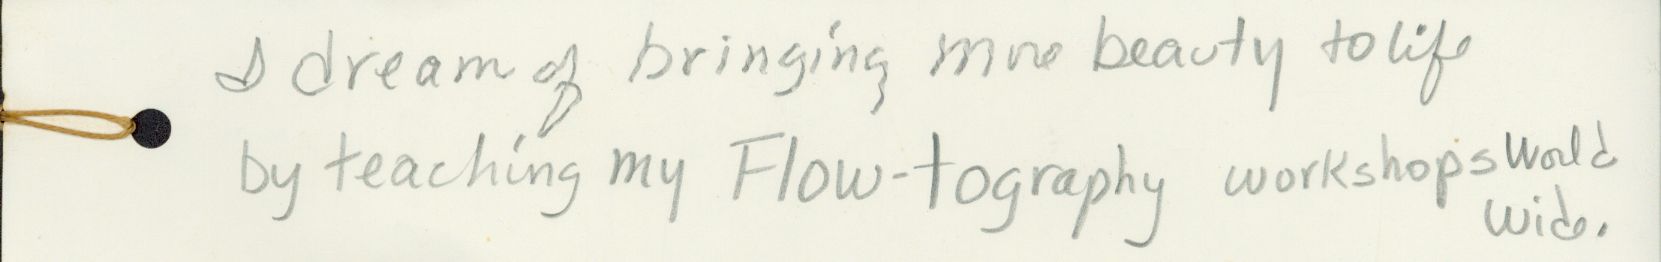 I dream of bringing more beauty to life
by teaching my Flow-tography workshops World
wide.